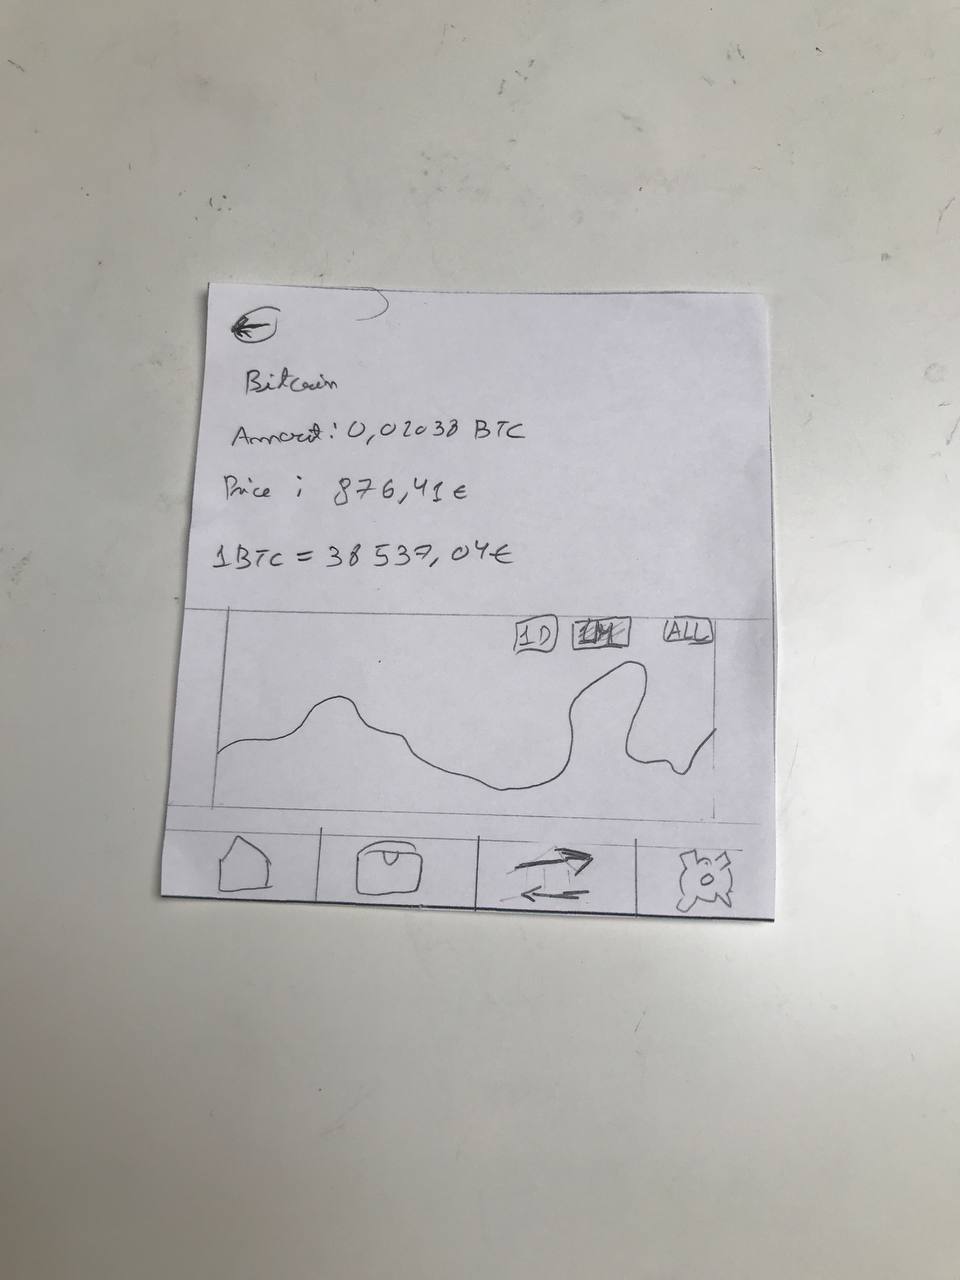 Bitcoin
Amount: 0,02038 BTC
Price : 876,41€
1BTC = 38 537,04€
1D 1M ALL